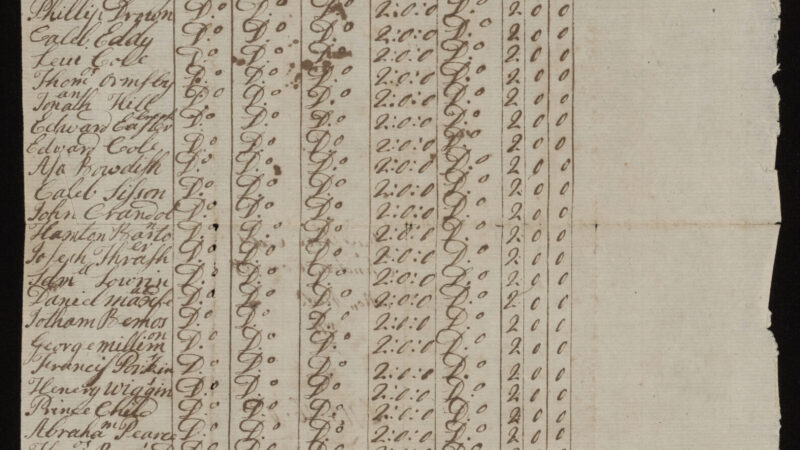 Phillip Brown D:o D:o D:o 2:0:0 D:o 2 0 0
Caleb Eddy D:o D:o D:o 2:0:0 D:o 2 0 0
Levi Cole D:o D:o D:o 2:0:0 D:o 2 0 0
Thom:s Ormsby D:o D:o D:o 2:0:0 D:o 2 0 0
Jonath:an Hill D:o D:o D:o 2:0:0 D:o 2 0 0
Edward D:o D:o D:o 2:0:0 D:o 2 0 0
Edward Cole D:o D:o D:o 2:0:0 D:o 2 0 0
Asa Bowdish D:o D:o D:o 2:0:0 D:o 2 0 0
Caleb Sisson D:o D:o D:o 2:0:0 D:o 2 0 0
John Crandol D:o D:o D:o 2:0:0 D:o 2 0 0
D:o D:o D:o 2:0:0 D:o 2 0 0
Joseph Thrasher D:o D:o D:o 2:0:0 D:o 2 0 0
Sam:l D:o D:o D:o 2:0:0 D:o 2 0 0
Daniel D:o D:o D:o 2:0:0 D:o 2 0 0
Jotham Bemos D:o D:o D:o 2:0:0 D:o 2 0 0
George D:o D:o D:o 2:0:0 D:o 2 0 0
Francis D:o D:o D:o 2:0:0 D:o 2 0 0
Henery Wiggin D:o D:o D:o 2:0:0 D:o 2 0 0
Prince Child D:o D:o D:o 2:0:0 D:o 2 0 0
Abraham Pearce D:o D:o D:o 2:0:0 D:o 2 0 0